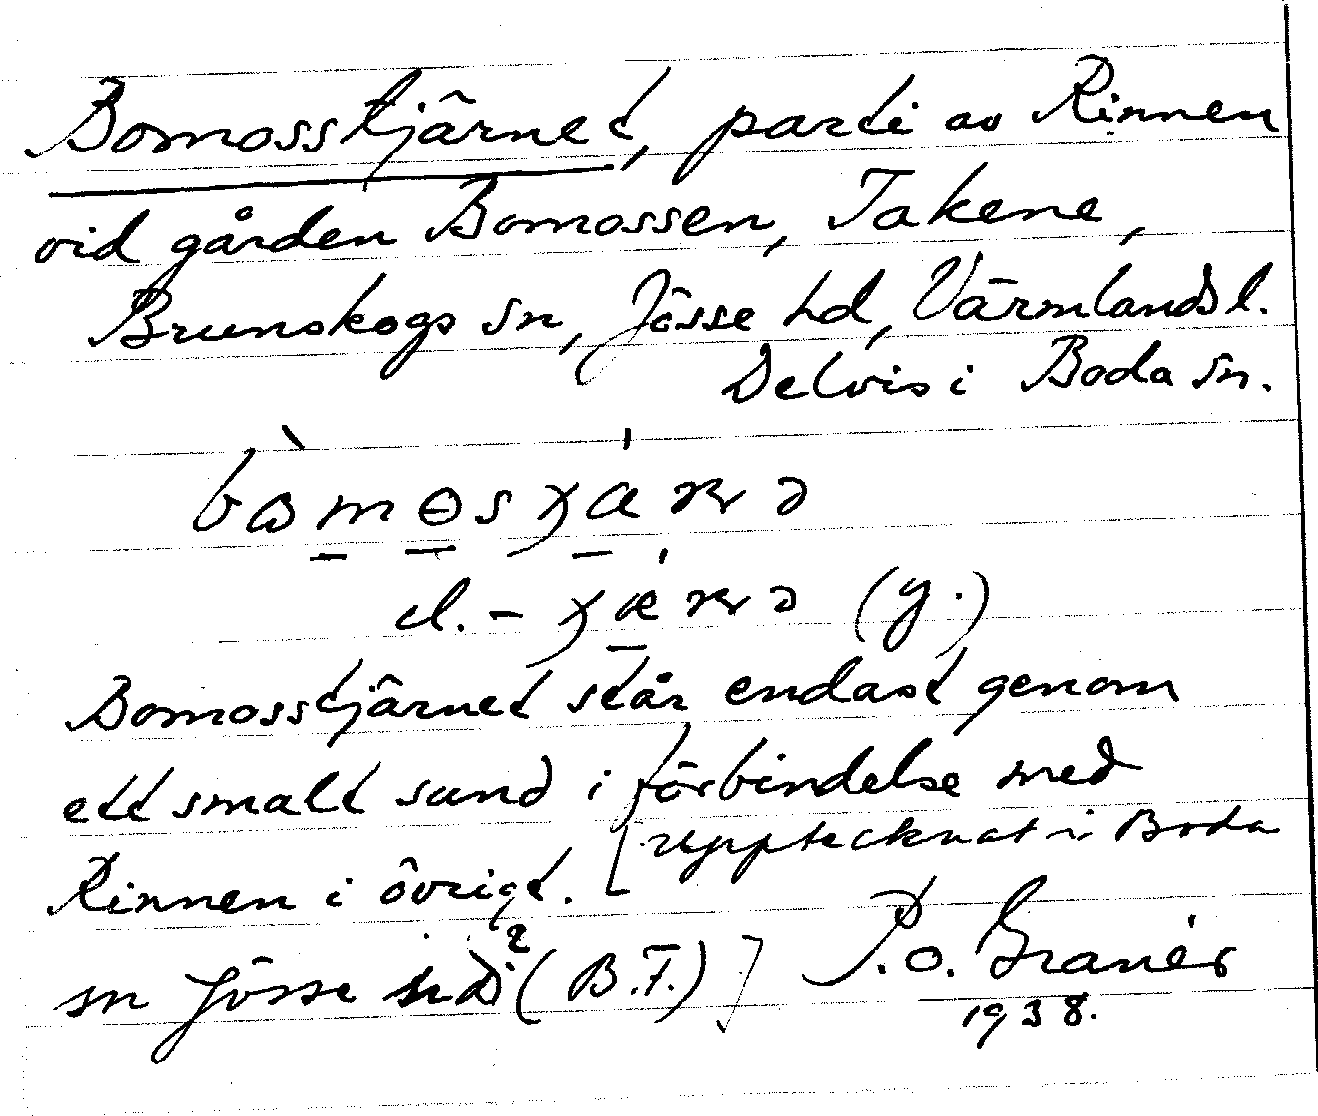 Bomosstjärnet, parti av Rinnen
vid gården Bomossen, Takene,
Brunskogs sn, Jösse hd, Värmlands l.
Delvis i Boda sn.
el. - (y.)
Bomosstjärnet står endast genom
ett smalt sund i förbindelse med
Rinnen i övrigt. [upptecknat i Boda
sn Jösse hd? (B.F.)] P.O. Granér
1938.